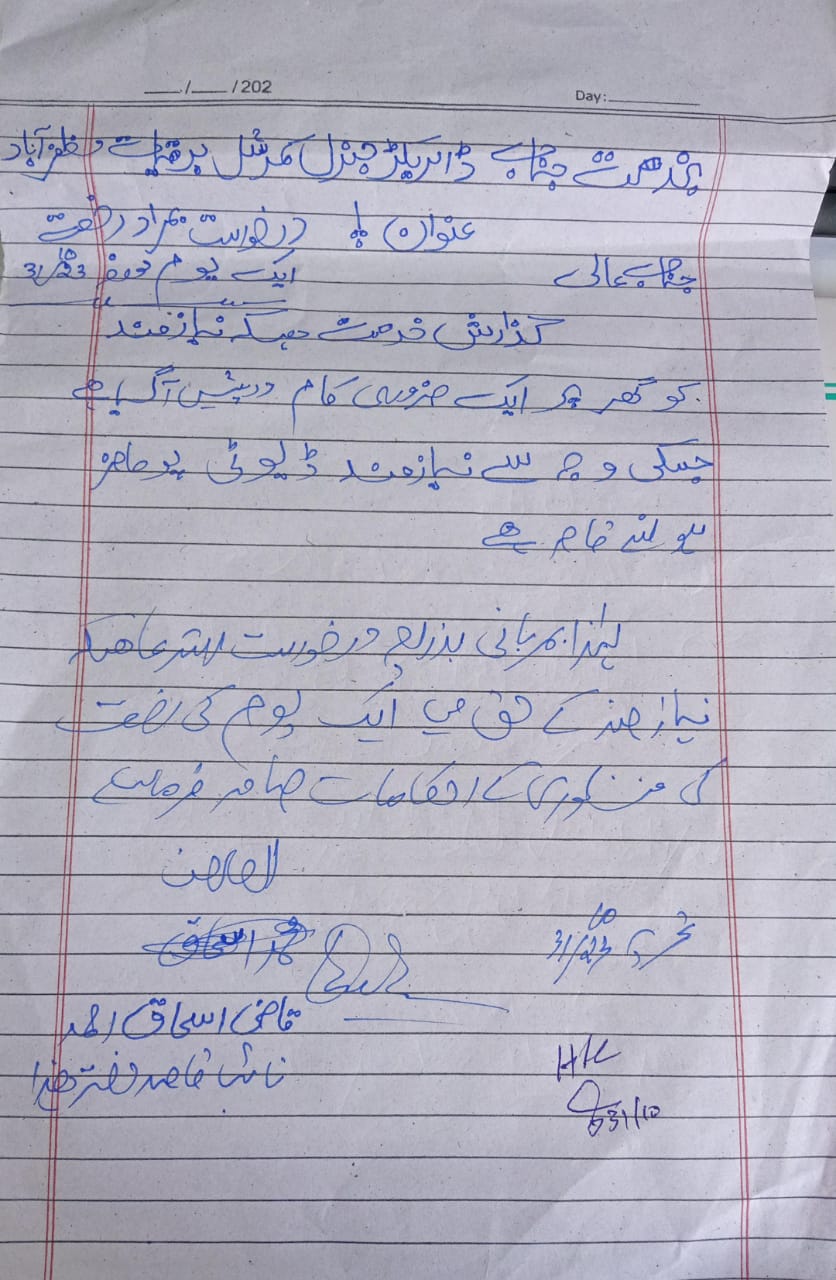 ___/___/202 Day:________
بخدمت جناب ڈائریکٹر جنرل کمرشل برقیات مظفرآباد
عنوان :۔ درخواست بمراد رخصت
جناب عالی ایک یوم مورخہ 31/10/23
گذارش خدمت ہیکہ نیازمند
کو گھر پر ایک ضروری کام درپیش آگیا ہے
جسکی وجہ سے نیازمند ڈیوٹی پر حاضر
ہونے سے قاصر ہے
لہذا بمہربانی بذریعہ درخواست استدعا ھیکہ
نیازمند کے حق میں ایک یوم کی رخصت
کی منظوری کے احکامات صادر فرمائے
العارض
تحریر 31/10/23
قاضی اسحاق احمد
نائب قاصد دفتر ھذا
31/10